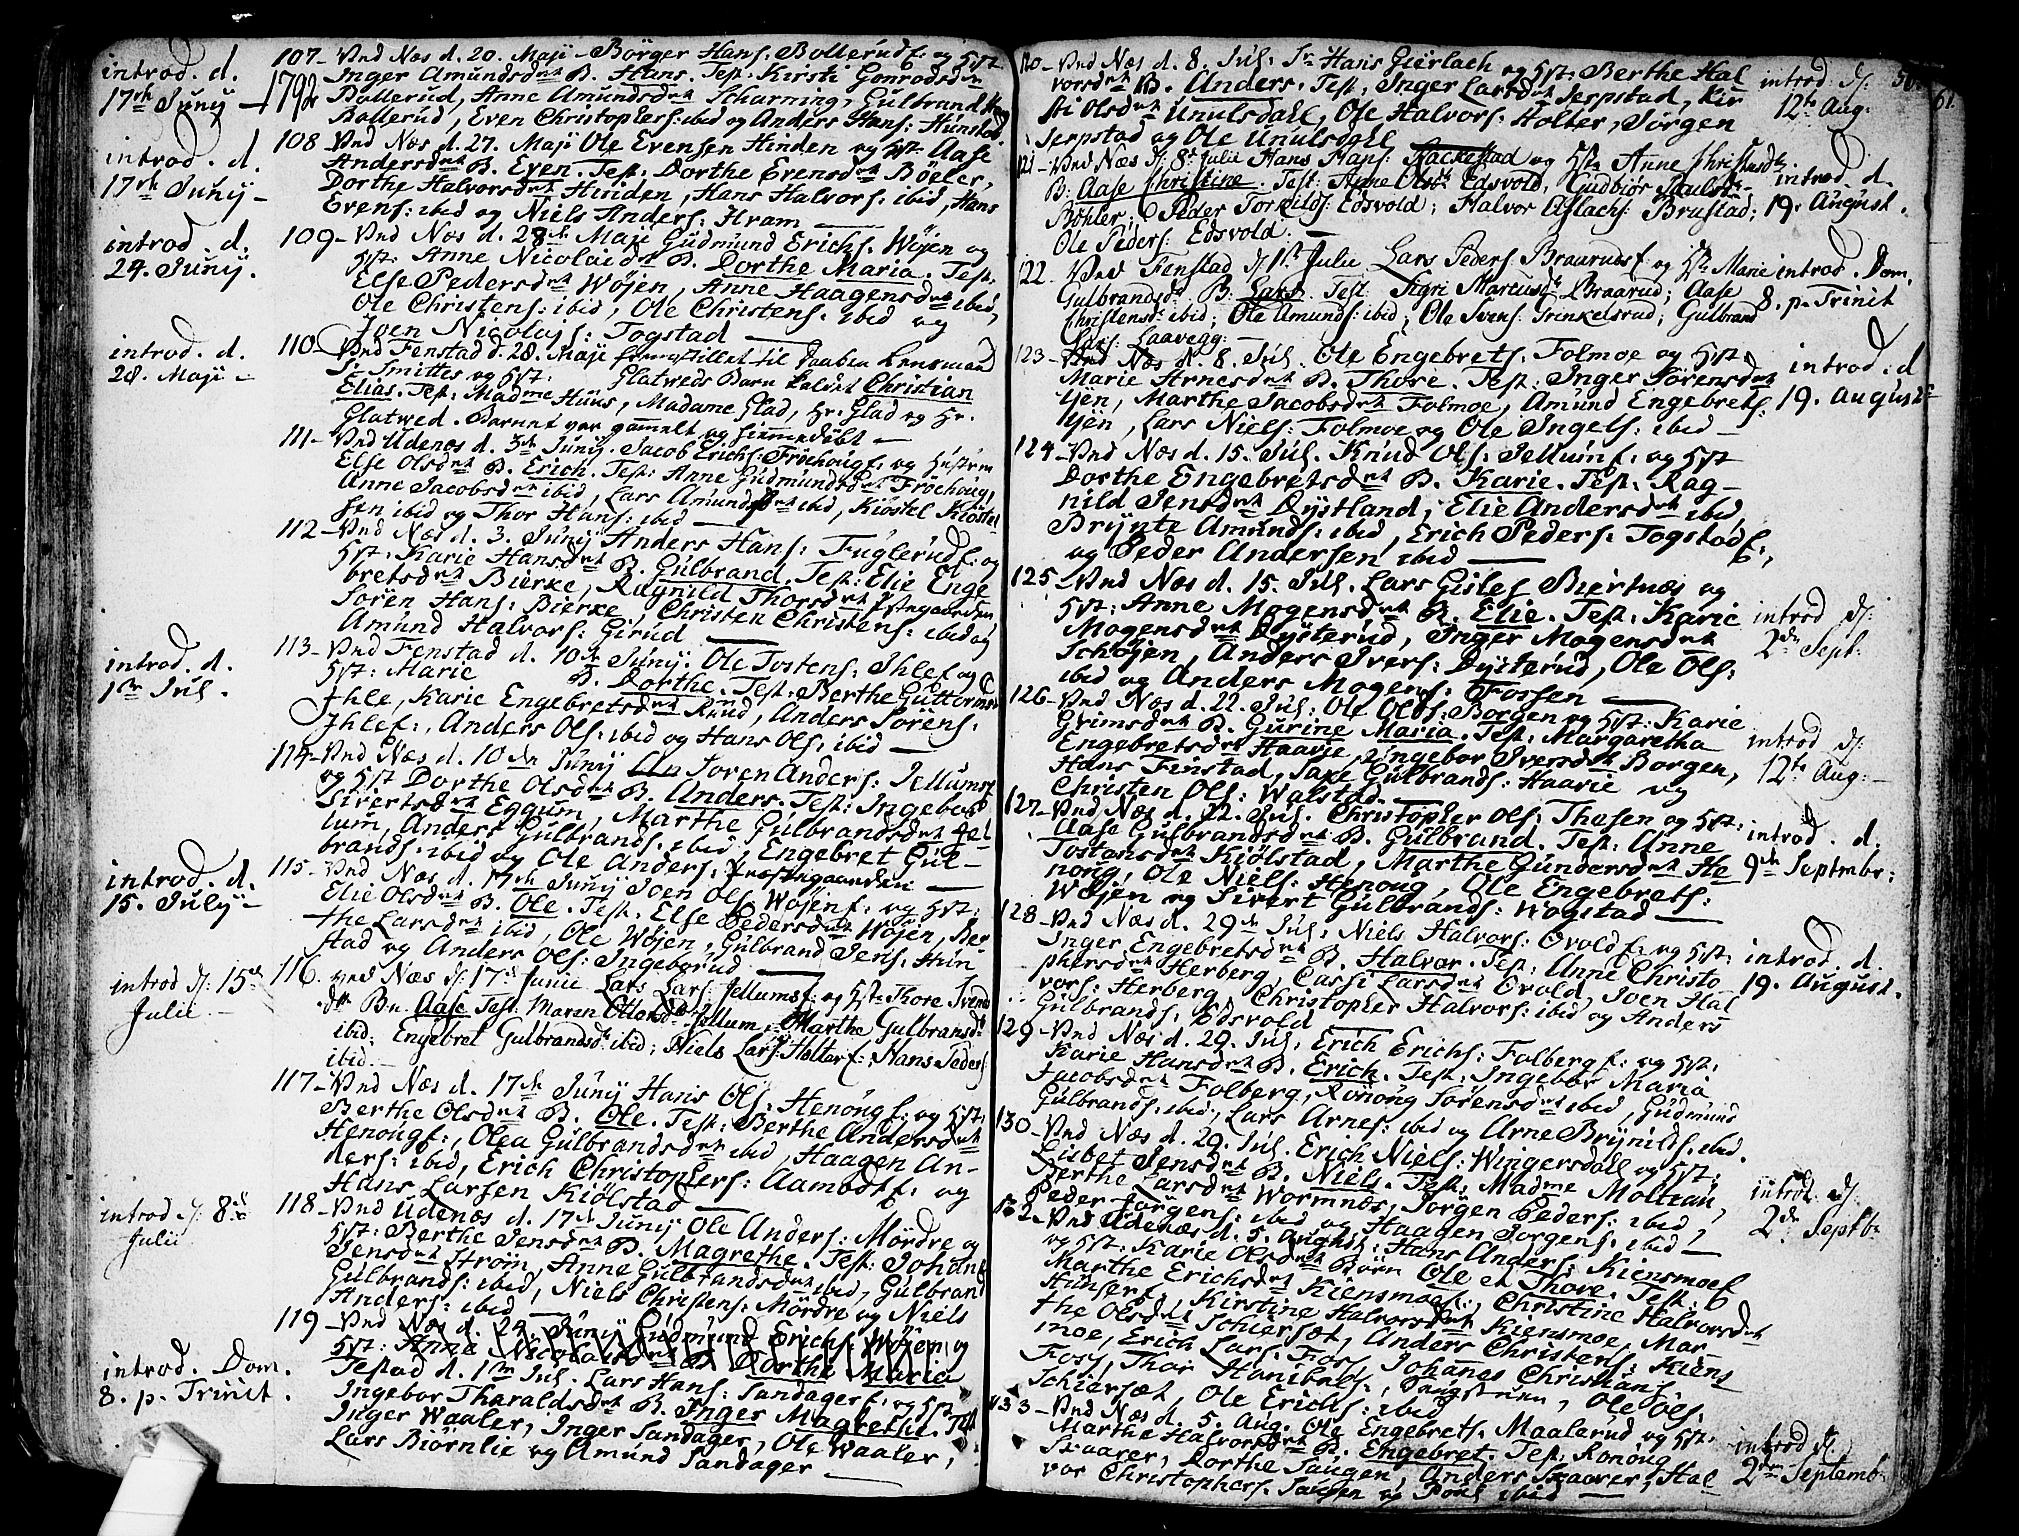 introd. d.
17de Junij
1792
107. Vnd Næs d. 20. Maji Børger Hans: Bollerudf. og Hst.
Inger Amundsdatt B. Hans. Test: Kirsti
Bollerud, Anne Amundsdatt Scharning, Gulbrand
Bollerud, Even Christophers: ibid og Anders Hans: Hunstad
introd. d.
17de Junij
108 Vnd Næs d. 27. Maji Ole Evensen Hinden og Hst: Aase
Andersdatt B. Even. Test: Dorthe Evensdatt Böeler,
Dorthe Halvorsdatt Hinden, Hans Halvors: ibid, Hans
Evens: ibid og Niels Anders: Hram
introd. d.
24. Junij.
109 Vnd Næs d. 28de Maji Gudmund Erichs. Wøjen og
Hst: Anne Nicolaid: B. Dorthe Maria. Test:
Else Pedersdatt Wøjen, Anne Haagensdatt ibid,
Ole Christens: ibid, Ole Christens: ibid og
Joen Nicolajs: Togstad
introd. d.
28. Maji
110 Vnd Fenstad d. 28. Maji fremstillet til Daaben Lensmand
Sr Smittes og Hst: Glatweds Barn kaldet Christian
Elias. Test: Madme Huus, Madame Glad, Hr. Glad og Hr.
Glatwed. Barnet var gammelt og hiemmedøbt
111 Vnd Udenæs d. 3de Junij. Jacob Erichs: Frøchoug f. og Hustru
Else Olsdatt B. Erich. Test: Anne Gudmundsdatt Frøchoug,
Anne Jacobsdatt ibid, Lars Amunds ibid, Kiøstel Kiøstel
sen ibid og Thor Hans: ibid
112 Vnd Næs d. 3. Junij Anders Hans: Fuglerud f. og
Hst: Karie Hansdatt B. Gulbrand. Test: Elie Enge
bretsdatt Bierke, Ragnild Thorsdatt Præstegaarden,
Søren Hans: Bierke, Christen Christens: ibid og
Amund Halvors: Girud
introd. d.
1ste Jul.
113 Vnd Fenstad d. 10de Junij. Ole Tostens: Ihle f. og
Hst: Marie B. Dorthe. Test: Berthe Guttorms
Ihle, Karie Engebretsdatt Ruud, Anders Sørens:
Ihle f., Anders Ols: ibid og Hans Ols: ibid
114 Vnd Næs d. 10de Junij Soren Anders: Jellumsf
og Hst Dorthe Olsdatt B. Anders. Test: Ingebor
Sivertsdatt Eggum, Marthe Gulbrandsdatt Jel
lum, Anders Gulbrands: ibid, Engebret Gul
brands: ibid og Ole Anders: Præstegaarden
introd. d.
15. July
115 Vnd Næs d. 17de Junij Joen Ols: Wøjen f. og Hst:
Elie Olsdatt B. Ole. Test. Else Pedersdatt Wøjen, Ber
the Larsdatt ibid, Ole Wøjen, Gulbrand Jens: Hun
stad og Anders Ols: Ingeborud
introd d: 15de
Julii
116. vnd Næs d: 17de Junii Lars Lars: Jellumsf og Hst: Thore Svends
dtr Bn. Aase Test. Maren Ottersdtr Jellum, Marthe Gulbransdtr
ibid; Engebret Gulbrandsd: ibid; Niels Lars: Holter f., Hans Peders
ibid
117 Vnd Næs d. 17de Junij Hans Ols: Henoug f: og Hst:
Berthe Olsdatt B. Ole. Test: Berthe Andersdatt
Henoug f:, Olea Gulbrandsdatt ibid, Haagen An
ders: ibid, Erich Christophers: Aamodt f: og
Hans Larsen Kiølstad
introd d: 8de
Julii
118 Vnd Udenæs d. 17de Junij Ole Anders: Mördre og
Hst: Berthe Jensdatt B. Magrethe. Test: Johane
Jensdatt Strøm, Anne Gulbrandsdatt ibid, Gulbrand
Gulbrands: ibid, Niels Christens: Mördre og Niels
Anders: ibid
119 Vnd Næs d. 24. Junij Gudmund Erichs: Wøjen og
Hst: Anne Nicolaisdatt B. Dorthe Maria
introd. Dom.
8. p. Trinit.
Testad d. 1ste Jul. Lars Hans: Sandager f. og Hst
Ingebor Tharaldsdatt B. Inger Magrethe. Test
Inger Waaler, Inger Sandager, Ole Waaler,
Lars Biørnlie og Amund Sandager
61.
120 Vnd Næs d. 8. Jul. Sr Hans Gierlach og Hst: Berthe Hal
vorsdatt B. Anders. Test: Inger Larsdatt Serpstad, Kir
sti Olsdatt Unulsdall, Ole Halvors: Holter, Jörgen
Serpstad og Ole Unulsdall
introd d:
12te Aug.
121 Vnd Næs d: 8de Julii Hans Hans: Rackestad og Hst: Anne Christensdtr
B: Aase Christine. Test: Anne Olsdtr Edsvold, Gudbiør Paulsdtr
Bøhler; Peder Torkilds: Edsvold; Halvor Aslachs: Brustad;
Ole Peders: Edsvold
introd. d.
19. August.
122. Vnd Fenstad d: 1ste Julii Lars Peders Braarudsf. og Hst Marie
Gulbrandsdtr B. Lars Test. Sigri Martusdtr Braarud; Aase
Christensd: ibid; Ole Amunds: ibid; Ole Svens: Trinkelsrud; Gulbrand
Lars: Laavegg
introd. Dom.
8. p. Trinit
123 Vnd Næs d. 8. Jul. Ole Engebrets. Folmoe og Hst.
Marie Arnesdatt B. Thore. Test: Inger Sørensdatt
Ijen, Marthe Jacobsdatt Folmoe, Amund Engebrets:
Ijen, Lars Niels: Folmoe og Ole Ingels: ibid
introd: d
19. August
124 Vnd Næs d. 15. Jul. Knud Ols: Jellum f. og Hst
Dorthe Engebretsdatt B. Karie. Test. Rag
nild Jensdatt Dystland, Elie Andersdatt ibid,
Brynte Amunds: ibid, Erich Peders: Togstad f.,
og Peder Andersen ibid
125 Vnd Næs d. 15. Jul. Lars Gisles Biertnæs og
Hst: Anne Mogensdatt B. Elie. Test: Karie
Mogensdatt Dysterud, Inger Mogensdatt
Schøjen, Anders Ivers: Dysterud, Ole Ols:
ibid og Anders Mogens: Fossen
introd d:
2den Sept:
126 Vnd Næs d. 22. Jul: Ole Ols: Borgen og Hst: Karie
Grimsdatt B. Gurine Maria. Test: Margaretha
Engebretsdatt Haavie, Ingebor Iversdatt Borgen,
Hans Finstad, Saxe Gulbrands: Haavie og
Christen Ols: Walstad
introd d:
12te Aug:
127 Vnd Næs d. 22. Jul. Christopher Ols: Thesen og Hst:
Aase Gulbrandsdatt B. Gulbrand. Test: Anne
Tostansdatt Kiölstad, Marthe Gundersdatt He
noug, Ole Niels: Henoug, Ole Engebrets:
Wøjen og Sivert Gulbrands: Wogstad
introd. d.
9de Septmbr:
128 Vnd Næs d. 29de Jul: Niels Halvors: Ovold f: og Hst:
Inger Engebretsdatt B. Halvor. Test: Anne Christo
phersdatt Herberg, Cassi Larsdatt Ovold, Joen Hal
vors: Herberg, Christopher Halvors: ibid og Anders
Gulbrands: Edsvold
introd. d.
19. August.
129 Vnd Næs d. 29. Jul: Erich Erichs: Folberg f: og Hst:
Karie Hansdatt B. Erich. Test: Ingebor Maria
Jacobsdatt Folberg, Rönoug Sörensdatt ibid, Gudmund
Gulbrands: ibid, Lars Arnes: ibid og Arne Brynilds: ibid.
130 Vnd Næs d. 29. Jul. Erich Niels: Wingersdall og Hst:
Lisbet Jensdatt B. Niels. Test: Madme Moltzau,
Berthe Larsdatt Wormnæs, Jørgen Peders: ibid,
Peder Jørgens: ibid og Haagen Jorgens: ibid
introd. d:
2de Septb
132. Vnd Udenæs d. 5. August: Hans Anders: Kiensmoe f
og Hst: Karie Olsdatt Börn Ole et Thore. Test:
Marthe Erichsdatt Kiensmoe f:, Christine Halvorsdatt
Hunser f., Kirstine Halvorsdatt Kiensmoe, Mar
the Olsdatt Schiersæt, Anders Christens: Kiens
moe, Erich Lars: Foss, Johannes Christians:
Foss, Thor Hanibals:, Ole Ols:
Schiersæt, Ole Erichs: ibid
133 Vnd Næs d. 5. Aug. Ole Engebrets: Maalerud og Hst:
Marthe Halvorsdatt B. Engebret. Test: Ronoug
Skaarer, Dorthe Saugen, Anders Skaarer, Hal
vor Christophers: Saugen og Poul ibid
introd d:
2den Septemb